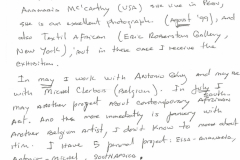 Annamaria McCarthy (USA) she live in Peru,
she is an excellent photographer (August '99), and
also Textil African (Eric Robertson Gallery,
New York); but in these ones I receive the
exhibition.
In may I work with Antonio and may be
with Michel Clerbois (Belgium). In July South
may another project about Contemporary African
Art. And the more immediately is primary with
Another Belgian artist, I don't know to more about
him. I have 5 proved project: Elsa - Annamaria,
Antonio - Michel - South Africa.